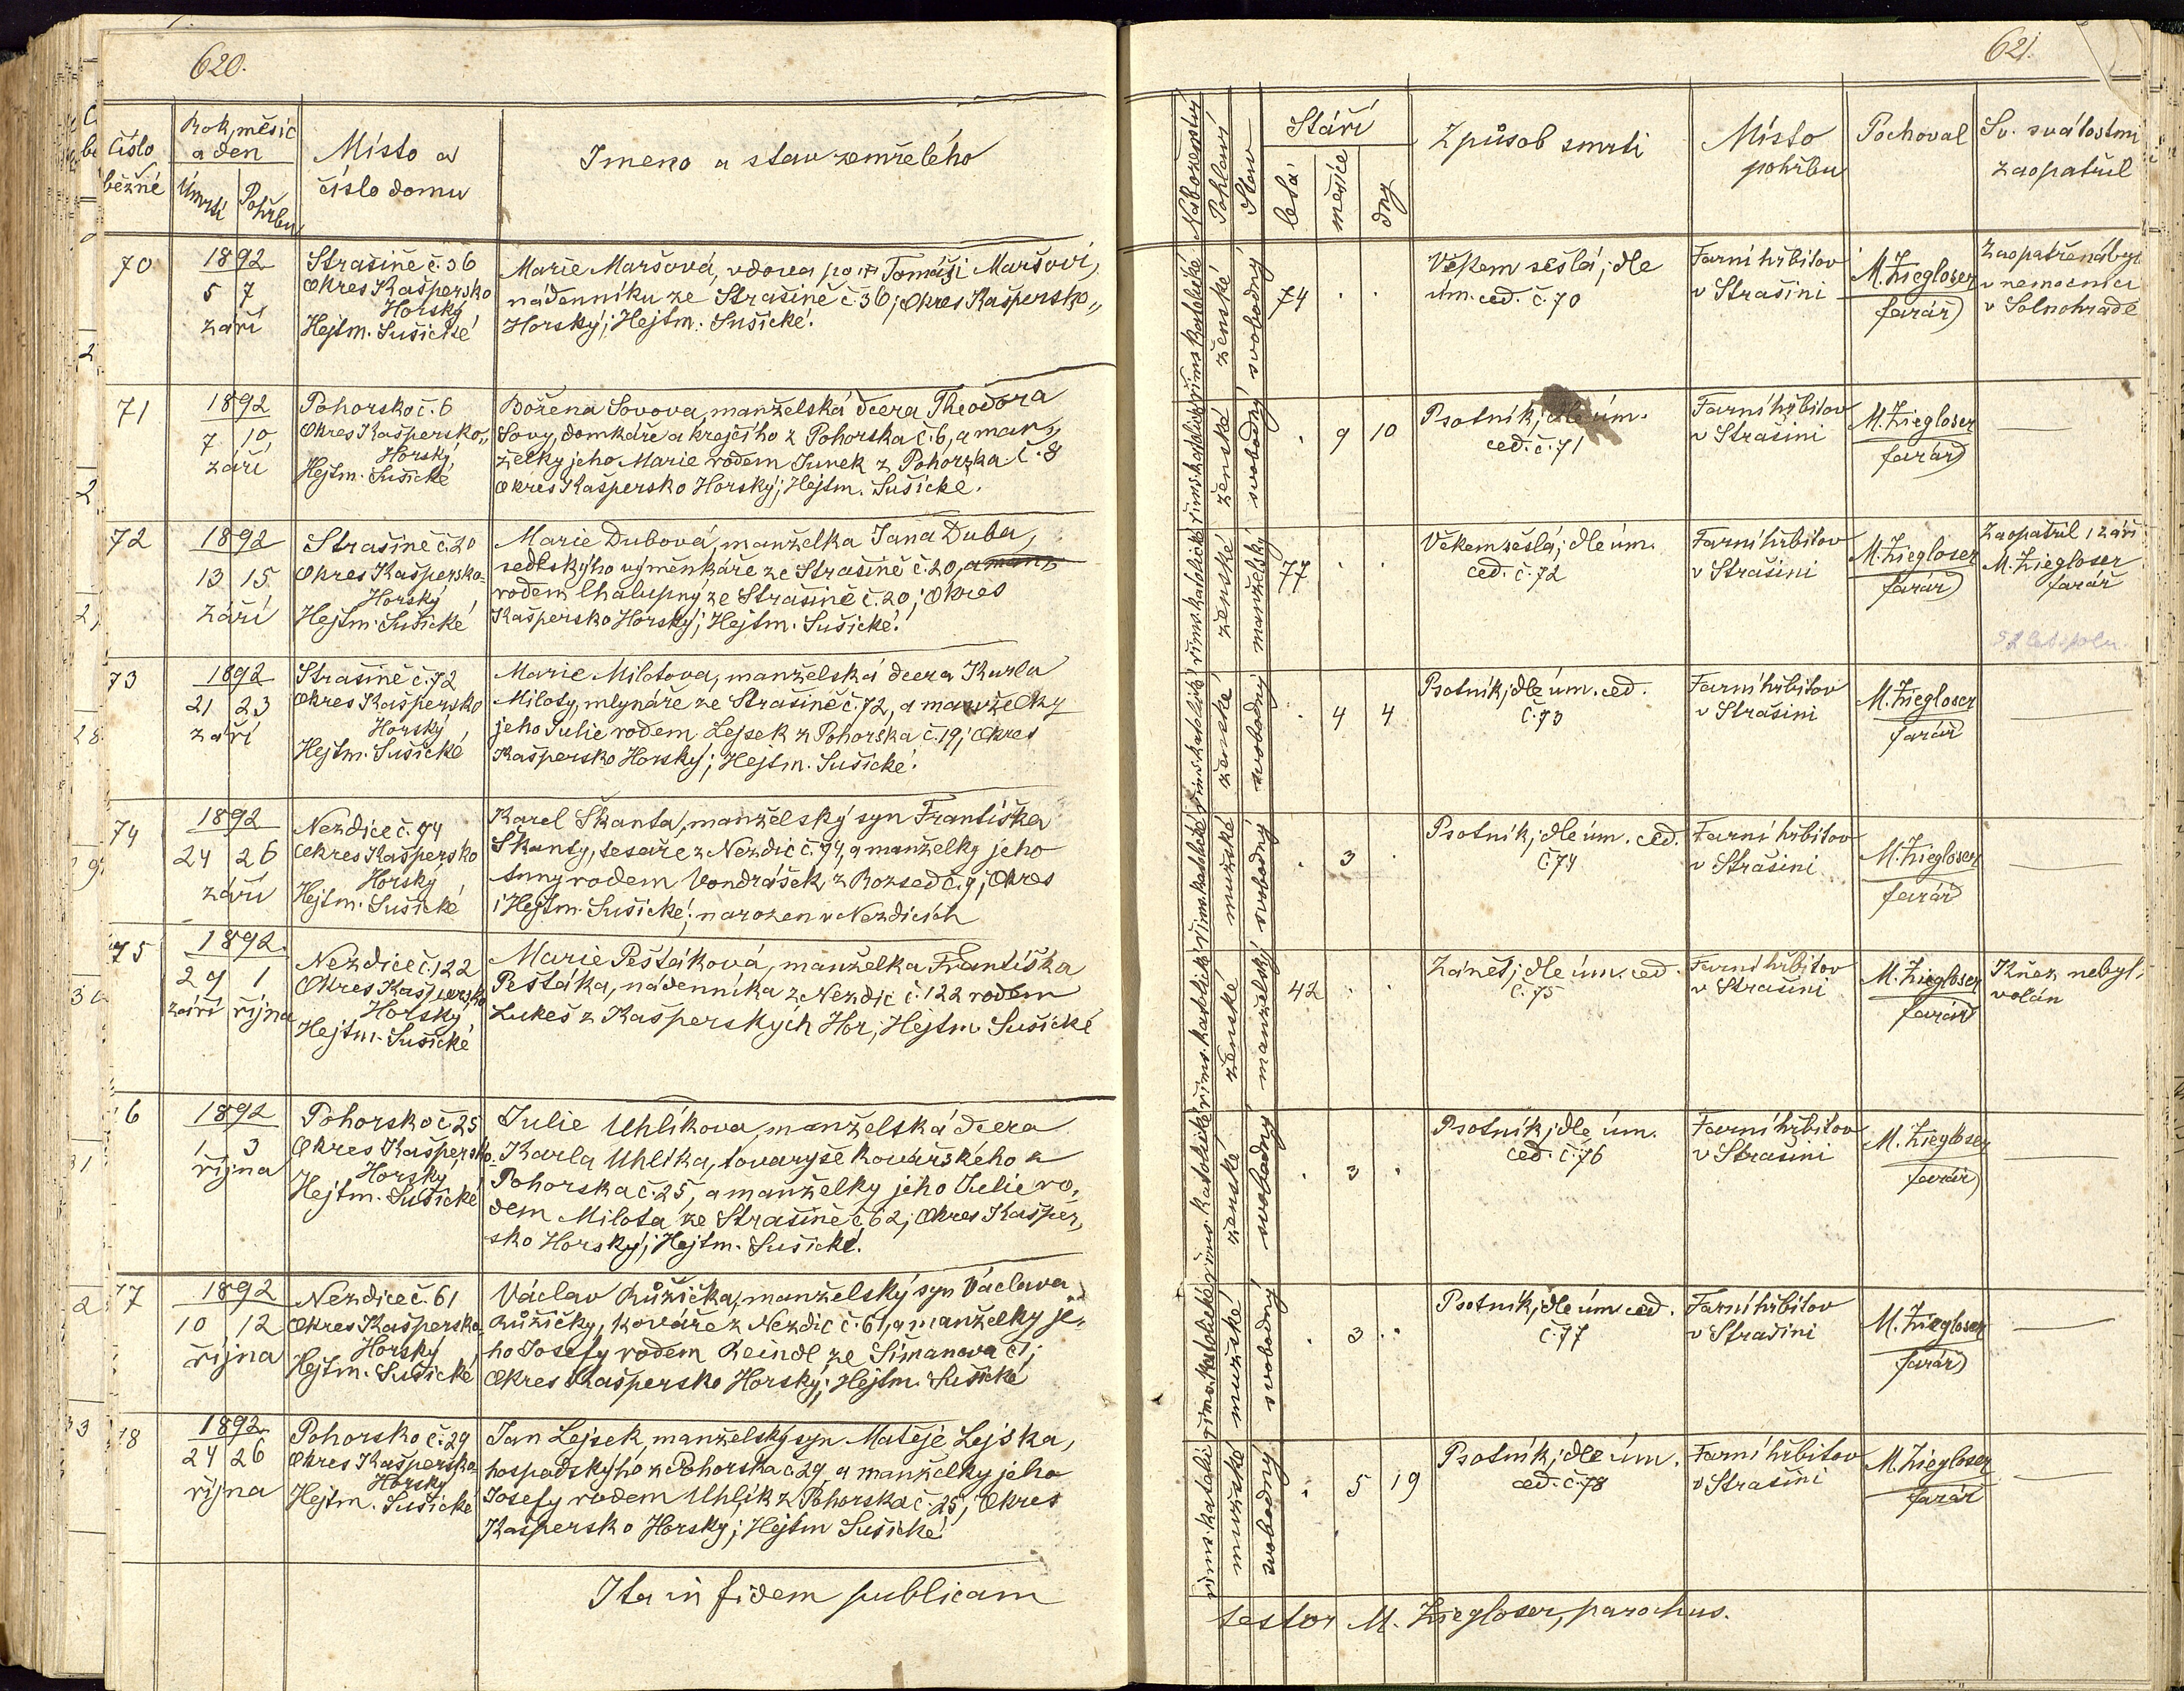 620.
Číslo běžné
Rok, měsíc a den
Úmrtí
Pohřbu
Místo a číslo domu
Jmeno a stav zemřelého
70
1892
5 7
září
Strašině č. 36
Okres Kašpersko
Horský
Hejtm. Sušické
Marie Maršová, vdova po Tomáši Maršovi,
nádenníku ze Strašině č. 36; Okres Kašpersko„
Horský; Hejtm. Sušické.
71
1892
7 10
září
Pohorsko č. 6
Okres Kašpersko„
Horský
Hejtm. Sušické
Božena Sovova, manželská dcera Theodora
Sovy, domkáře a krejčího z Pohorska č. 6, a man„
želky jeho Marie rodem Junek z Pohorska č. 8
Okres Kašpersko Horský; Hejtm. Sušické.
72
1892
13 15
září
Strašině č. 20
Okres Kašpersko-
Horský
Hejtm. Sušické
Marie Dubová, manželka Jana Duba,
sedlskýho výměnkáře ze Strašině č. 20, a man„
rodem Chalupný ze Strašině č. 20; Okres
Kašpersko Horský; Hejtm. Sušické.
73
1892
21 23
září
Strašině č. 72
Okres Kašpersko
Horský
Hejtm. Sušické
Marie Milotova, manželská dcera Karla
Miloty, mlynáře ze Strašině č. 72, a manželky
jeho Julie rodem Lejsek z Pohorska č. 19; Okres
Kašpersko Horský; Hejtm. Sušické.
74
1892
24 26
září
Nezdice č. 94
Okres Kašpersko
Horský
Hejtm. Sušické
Karel Škanta, manželský syn Františka
Škanty, tesaře z Nezdic č. 94, a manželky jeho
Anny rodem Vondrášek z Rozsed č. 9; Okres
i Hejtm. Sušické; narozen v Nezdicích
75
1892
29 1
září října
Nezdice č. 122
Okres Kašpersko
Horský
Hejtm. Sušické
Marie Pešťáková, manželka Františka
Pešťáka, nádenníka z Nezdic č. 122 rodem
Lukeš z Kašperských Hor, Hejtm. Sušické
6
1892
1 3
října
Pohorsko č. 25
Okres Kašpersko
Horský
Hejtm. Sušické
Julie Uhlíkova, manželská dcera
Karla Uhlíka, tovaryše kovářského z
Pohorska č. 25, a manželky jeho Julie ro„
dem Milota ze Strašině č. 62; Okres Kašper„
sko Horský; Hejtm. Sušické.
77
1892
10 12
října
Nezdice č. 61
Okres Kašpersko-
Horský
Hejtm. Sušické
Václav Růžička, manželský syn Václava
Růžičky, kováře z Nezdic č. 61, a manželky je„
ho Josefy rodem Reindl ze Šimanova č. 1;
Okres Kašpersko Horský; Hejtm. Sušické
78
1892
24 26
října
Pohorsko č. 29
Okres Kašpersko
Horský
Hejtm. Sušické
Jan Lejsek, manželský syn Matěje Lejska,
hospodskýho z Pohorska č. 29, a manželky jeho
Josefy rodem Uhlík z Pohorska č. 25; Okres
Kašpersko Horský; Hejtm Sušické
Ita in fidem publicam
621.
Náboženství
Pohlaví
Stav
Stáří
letá
měsíce
dny
Způsob smrti
Místo pohřbu
Pochoval
Sv. svátostmi zaopatřil
řims. katolické
ženské
svobodný
74 . .
Věkem sešlá; dle
úm. ced. č. 70
Farní hřbitov
v Strašini
M. Ziegloser
farář
Zaopatřena byl
v nemocnici
v Solnohradě
řims. katolické
ženské
svobodný
. 9 10
Psotník; dle úm.
ced. č. 71
Farní hřbitov
v Strašini
M. Ziegloser
farář
řims. katolické
ženské
manželský
77 . .
Věkem sešlá; dle úm.
ced. č. 72
Farní hřbitov
v Strašini
M. Ziegloser
farář
Zaopatřil 1 září
M. Ziegloser
farář
52 let spolu
řims. katolické
ženské
svobodný
. 4 4
Psotník; dle úm. ced.
č. 73
Farní hřbitov
v Strašini
M. Ziegloser
farář
řims. katolické
mužské
svobodný
. 3 .
Psotník; dle úm. ced.
č. 74
Farní hřbitov
v Strašini
M. Ziegloser
farář
řims. katolické
ženské
manželský
42 . .
Zánět; dle úm. ced.
č. 75
Farní hřbitov
v Strašini
M. Ziegloser
farář
Kněz nebyl
volán
řims. katolické
ženské
svobodný
. 3 .
Psotník; dle úm.
ced. č. 76
Farní hřbitov
v Strašini
M. Ziegloser
farář
řims. katolické
mužské
svobodný
. 3 .
Psotník; dle úm. ced.
č. 77
Farní hřbitov
v Strašini
M. Ziegloser
farář
řims. katolické
mužské
svobodný
. 5 19
Psotník; dle úm.
ced. č. 78
Farní hřbitov
v Strašini
M. Ziegloser
farář
testor M. Ziegloser, parochus.